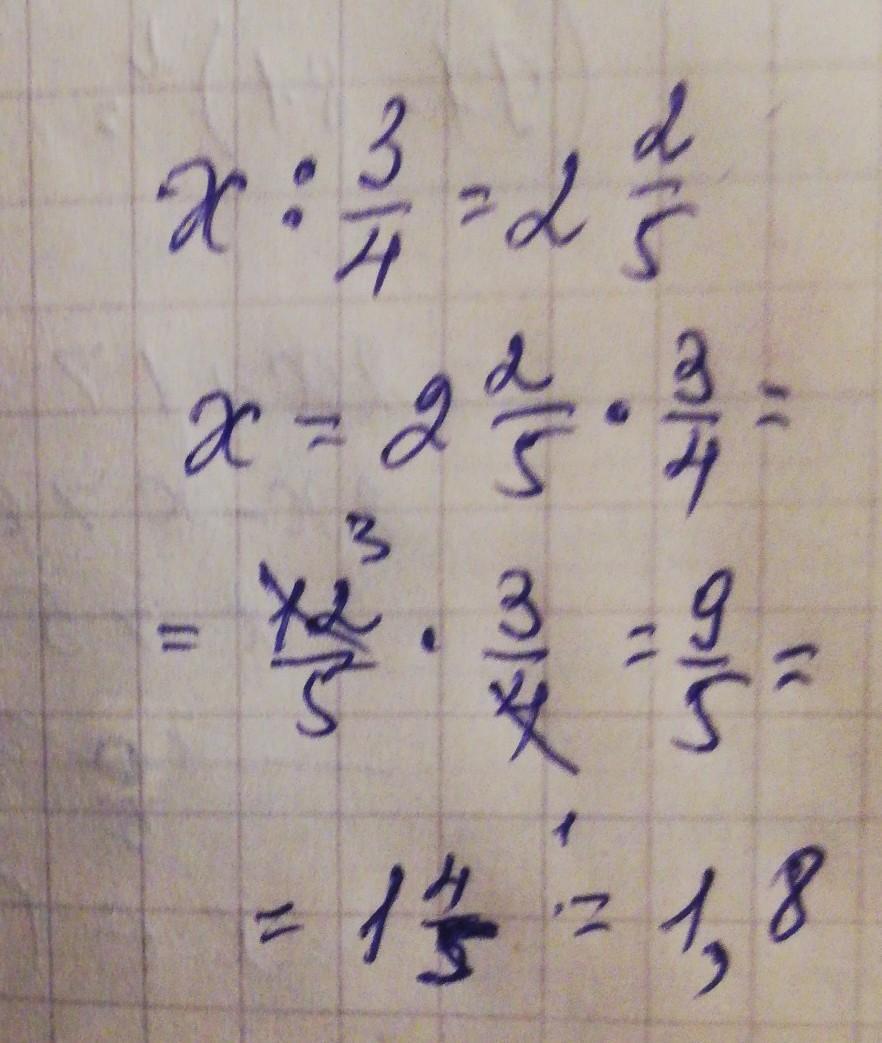 x : 3/4 = 2 2/5
x = 2 2/5 · 3/4 =
= 12/5 3 · 3/4 1 = 9/5 =
= 1 4/5 = 1,8